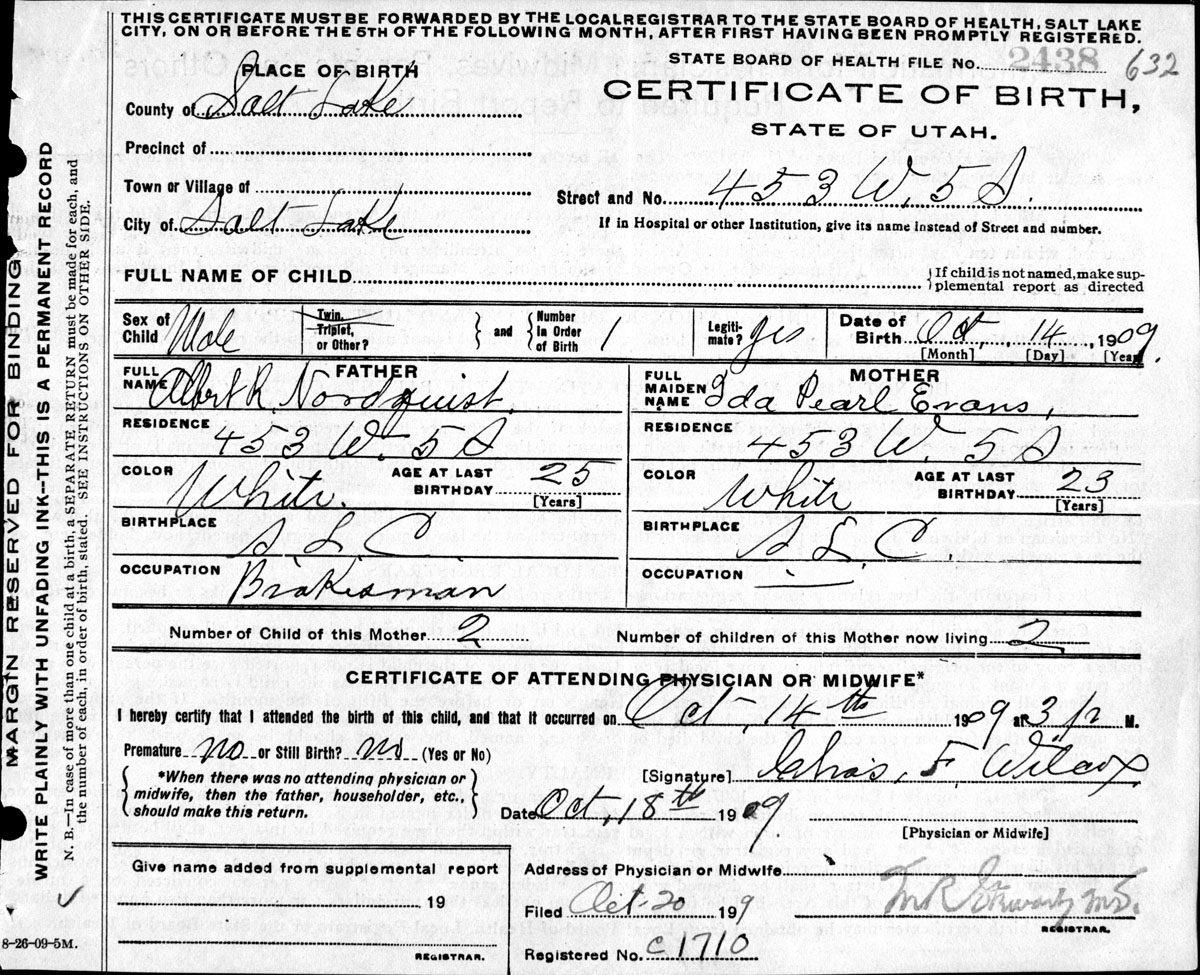 THIS CERTIFICATE MUST BE FORWARDED BY THE LOCAL REGISTRAR TO THE STATE BOARD OF HEALTH, SALT LAKE
CITY, ON OR BEFORE THE 5TH OF THE FOLLOWING MONTH, AFTER FIRST HAVING BEEN PROMPTLY REGISTERED.
STATE BOARD OF HEALTH FILE No. 2438 632
PLACE OF BIRTH
CERTIFICATE OF BIRTH,
County of Salt Lake
STATE OF UTAH.
Precinct of
Town or Village of
Street and No. 453 W. 5 S.
City of Salt Lake
If in Hospital or other Institution, give its name instead of Street and number.
FULL NAME OF CHILD
{If child is not named, make sup-
plemental report as directed
Sex of Child Male Twin, Triplet, or Other? } and { Number in Order of Birth 1 Legiti- mate? yes Date of Birth Oct, 14, 1909.
[Month] [Day] [Year]
FATHER
FULL NAME Albert R. Nordquist.
MOTHER
FULL MAIDEN NAME Ida Pearl Evans,
RESIDENCE 453 W. 5 S
RESIDENCE 453 W. 5 S
COLOR White. AGE AT LAST BIRTHDAY 25 [Years]
COLOR White AGE AT LAST BIRTHDAY 23 [Years]
BIRTHPLACE S. L. C.
BIRTHPLACE S L C
OCCUPATION Brakesman
OCCUPATION
Number of Child of this Mother 2 Number of children of this Mother now living 2
CERTIFICATE OF ATTENDING PHYSICIAN OR MIDWIFE*
I hereby certify that I attended the birth of this child, and that it occurred on Oct 14th 1909 at 3 1/2 M.
Premature no or Still Birth? no (Yes or No)
{ *When there was no attending physician or
midwife, then the father, householder, etc.,
should make this return. }
[Signature] Chas, F Wilcox
Date Oct, 18th 1909
[Physician or Midwife]
Give name added from supplemental report
19
REGISTRAR.
Address of Physician or Midwife
Filed Oct 20 199
REGISTRAR.
Registered No. c1710
MARGIN RESERVED FOR BINDING
WRITE PLAINLY WITH UNFADING INK--THIS IS A PERMANENT RECORD
N. B.--In case of more than one child at a birth, a SEPARATE RETURN must be made for each, and
the number of each, in order of birth, stated. SEE INSTRUCTION ON OTHER SIDE.
8-26-09-5M.